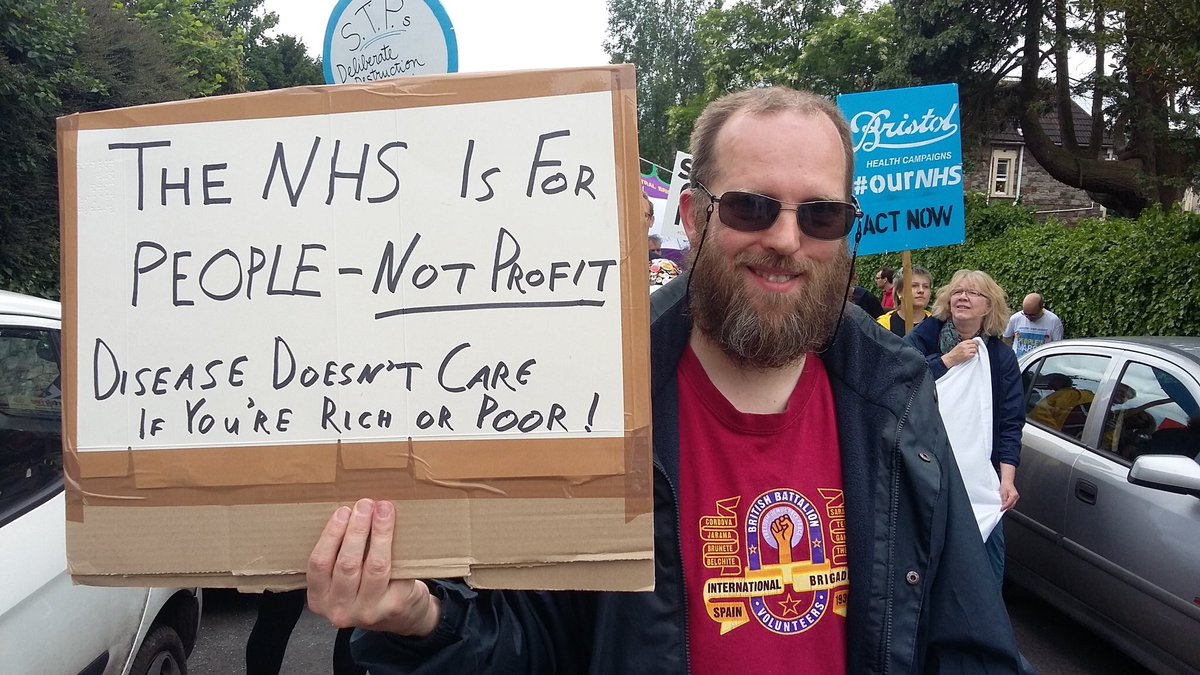 S.T.P.s
Deliberate
THE NHS IS FOR
PEOPLE – NOT PROFIT
DISEASE DOESN'T CARE
IF YOU'RE RICH OR POOR!
Bristol
HEALTH CAMPAIGNS
#OURNHS
ACT NOW
BRITISH BATTALION
CORDOVA
JARAMA
BRUNETE
BELCHITE
INTERNATIONAL BRIGADE
SPAIN
VOLUNTEERS